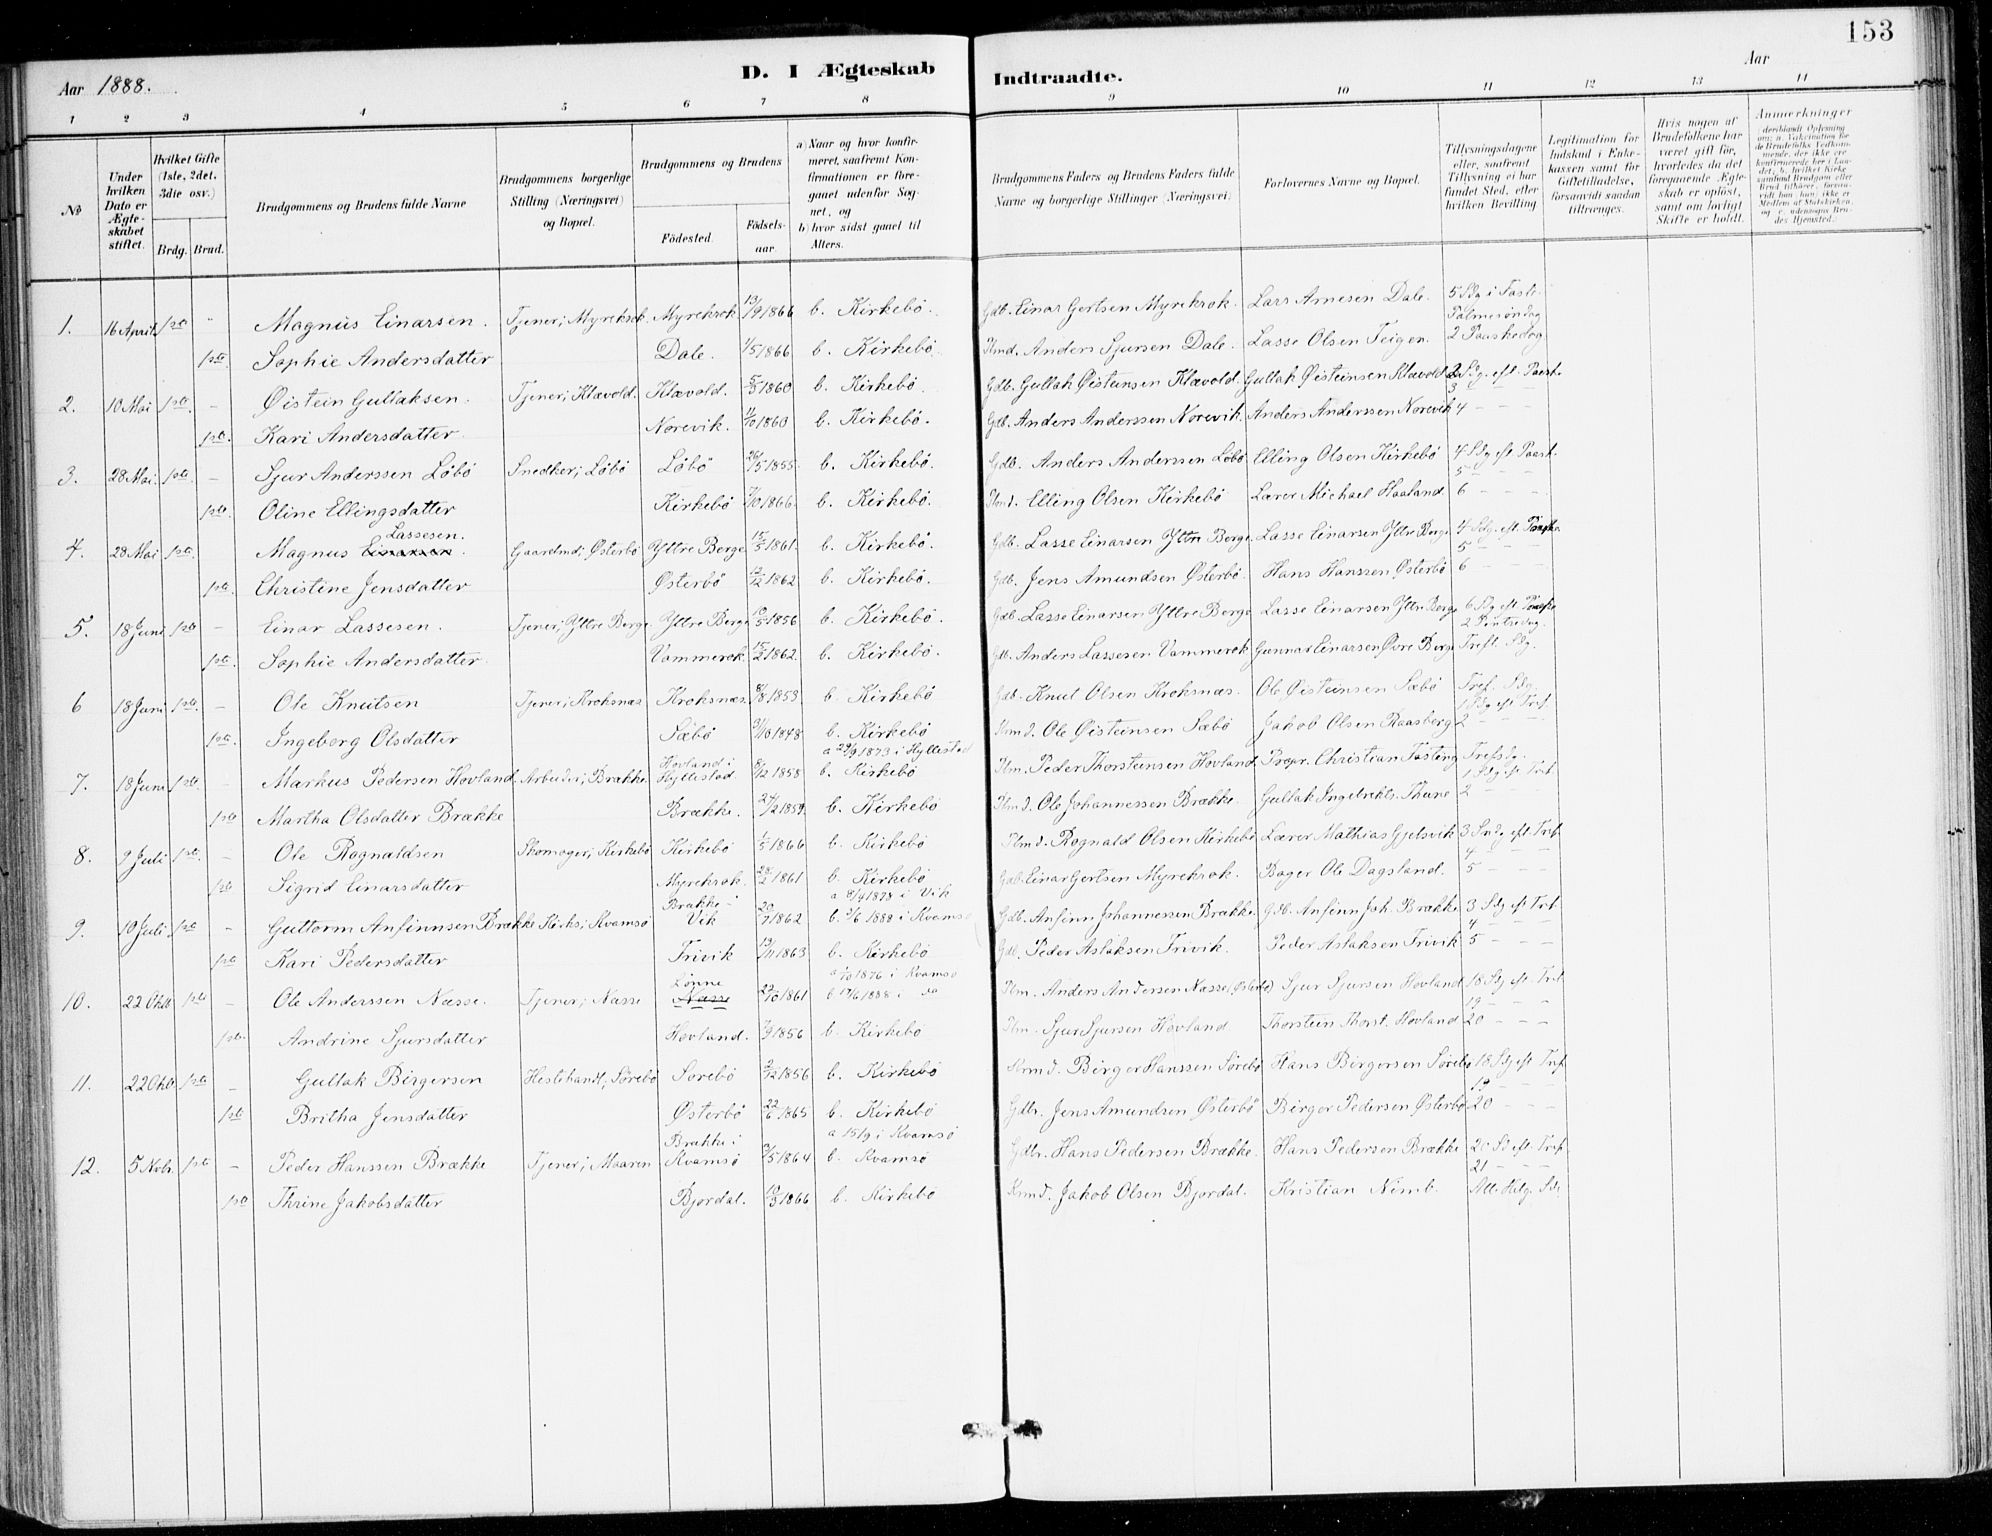 153
Aar 1888.
D. I Ægteskab Indtraadte.
Aar
1 2 3 4 5 6 7 8 9 10 11 12 13 14
No
Under hvilken Dato er Ægteskabet stiftet.
Hvilket Gifte (1ste, 2det, 3die osv.)
Brdg. Brud.
Brudgommens og Brudens fulde Navne
Brudgommens borgerlige Stilling (Næringsvei) og Bopæl.
Brudgommens og Brudens
Fødested. Fødselsaar.
a) Naar og hvor konfirmeret, saafremt Konfirmationen er foregaaet udenfor Sognet, og
b) hvor sidst gaaet til Alters.
Brudgommens Faders og Brudens Faders fulde Navne og borgerlige Stillinger (Næringsvei)
Forlovernes Navne og Bopæl.
Tillysningsdagene eller, saafremt Tillysning ei har fundet Sted, efter hvilken Bevilling
Legitimation for Indskud i Enkekassen samt for Giftetilladelse, forsaavidt saadan tiltrænges.
Hvis nogen af Brudefolkene har været gift før, hvorledes da det foregaaende Ægteskab er opløst, samt om lovligt Skifte er holdt.
Anmærkninger
1. 16 April 1ste " Magnus Einarsen. Tjener; Myrekrok. Myrekrok 13/9 1866 b. Kirkebö. Gdb. Einar Gertsen Myrekrok. Lars Arnesen Dale. 5 Sdg i Faste.
Palmesöndag
1ste. Sophie Andersdatter Dale. 1/5 1866 b. Kirkebö. Hmd. Anders Sjursen Dale. Lasse Olsen Teigen. 2 Paaskedag
2. 10 Mai 1ste. – Øistein Gullaksen. Tjener; Klævold. Klævold. 5/5 1860 b. Kirkebö. Gdb. Gullak Øisteinsen Klævold. Gullak Øisteinsen Klævold 2 Sdg. eft. Paask.
3
1ste. Kari Andersdatter. Norevik. 1/10 1860 b. Kirkebö. Gdb. Anders Anderssen Norevik. Anders Anderssen Norevik 4 – – –
3. 28 Mai. 1ste. – Sjur Anderssen Löbö Snedker; Löbö Löbö 26/5 1855. b. Kirkebö. Gdb. Anders Anderssen Löbö Elling Olsen Kirkebö 4 Sdg eft Paask.
5 – – –
1ste. Oline Ellingsdatter Kirkebö 7/10 1866. b. Kirkebö. Hmd. Elling Olsen Kirkebö Lærer Michael Haaland. 6 – – –
Lassesen.
4. 28 Mai 1ste. – Magnus Einarsen. Gaardmd; Østerbö Yttre Berge 15/5 1861. b. Kirkebö. Gdb. Lasse Einarsen Yttre Berge. Lasse Einarsen Yttre Berge 4 Sdg. eft. Paaske.
5 – – –
1ste. Christine Jensdatter Østerbö 12/12 1862. b. Kirkebö. Gdb. Jens Amundsen Østerbö. Hans Hanssen Østerbö 6 – – –
5. 18 Juni 1ste – Einar Lassesen. Tjener; Yttre Berge. Yttre Berge 10/5 1856 b. Kirkebö. Gdb. Lasse Einarsen Yttre Berge. Lasse Einarsen Yttre Berge 6 Sdg eft Paaske
2 Pintsedag
1ste. Sophie Andersdatter. Vammerok. 15/2 1862. b. Kirkebö. Gdb. Anders Lassesen Vammerok Gunnar Einarsen Øvre Berge Tref. Sdg.
6 18 Juni 1ste. – Ole Knutsen Tjener; Kroksnæs Kroksnæs. 8/8 1853. b. Kirkebö Gdb. Knut Olsen Kroksnæs. Ole Øisteinsen Sæbö Tref. Sdg.
1 Sdg eft Tref.
1ste. Ingeborg Olsdatter Sæbö 9/10 1848 b. Kirkebö Hmd. Ole Øisteinsen Sæbö Jakob Olsen Raasberg 2 – – –
a 29/9 1873 i Hyllestad
7. 18 Juni 1ste – Markus Pedersen Hovland. Arbeider; Brække. Hovland i Hyllestad 8/12 1858 b. Kirkebö Hm. Peder Thorsteinsen Hovland. Propr. Christian Fasting Trefsdg.
1 Sdg eft Tref.
1ste Martha Olsdatter Brække Brække. 27/2 1859. b. Kirkebö Hmd. Ole Johannessen Brække. Gullak Ingebrikts. Thune 2 – – –
8. 9 Juli 1ste. – Ole Rognaldsen Skomager; Kirkebö Kirkebö 1/5 1866 b. Kirkebö Hmd. Rognald Olsen Kirkebö. Lærer Mathias Gjelsvik 3 Sndg eft. Tref.
4 – – –
1ste Sigrid Einarsdatter Myrekrok. 28/2 1861 b. Kirkebö Gdb. Einar Gertsen Myrekrok. Bager Ole Dagsland. 5 – – –
a 8/9 1878 i Vik
9. 10 Juli 1ste – Guttorm Anfinnsen Brække Kirks; Kvamsö Brække i Vik 20/7 1862 b. 3/6 1888 i Kvamsö Gdb. Anfinn Johannessen Brække. Gdb. Anfinn Joh. Brække. 3 Sdg eft Tref.
4
1ste Kari Pedersdatter Trivik 19/11 1863 b. Kirkebö Gdb. Peder Aslaksen Trivik. Peder Aslaksen Trivik 5 – – –
a 1/10 1876 i Kvamsö
10. 22 Oktb 1ste – Ole Anderssen Næsse. Tjener; Næsse Lönne Næsse 22/10 1861 b 17/6 1888 i da Hm. Anders Andersen Næsse (Østerbö) Sjur Sjursen Hovland 18 Sdg eft Tref
19 – – –
1ste. Andrine Sjursdatter Hovland. 7/9 1856 b. Kirkebö Hm. Sjur Sjursen Hovland Thorstein Thorst. Hovland 20 – – –
11. 22 Oktb 1ste – Gullak Birgersen Hestehandl; Sörebö Sörebö 2/12 1856 b. Kirkebö Hrmd. Birger Hanssen Sörebö Hans Birgersen Sörebö 18 Sdg eft Tref.
19 – – –
1ste Britha Jensdatter Østerbö 22/6 1865 b. Kirkebö Gdbr. Jens Amundsen Østerbö Birger Pedersen Østerbö 20 – – –
a 15/9 i Kvamsö
12. 5 Novbr. 1ste – Peder Hanssen Brække Tjener; Maaren Brække i Kvamsö 3/5 1864 b. Kvamsö Gdbr. Hans Pedersen Brække. Hans Pedersen Brække 20 Sd eft. Tref
21 – – –
1ste Thrine Jakobsdatter Bjordal. 10/3 1866 b. Kirkebö Hrmd. Jakob Olsen Bjordal. Kristian Nimb. All. Helg. Sdg